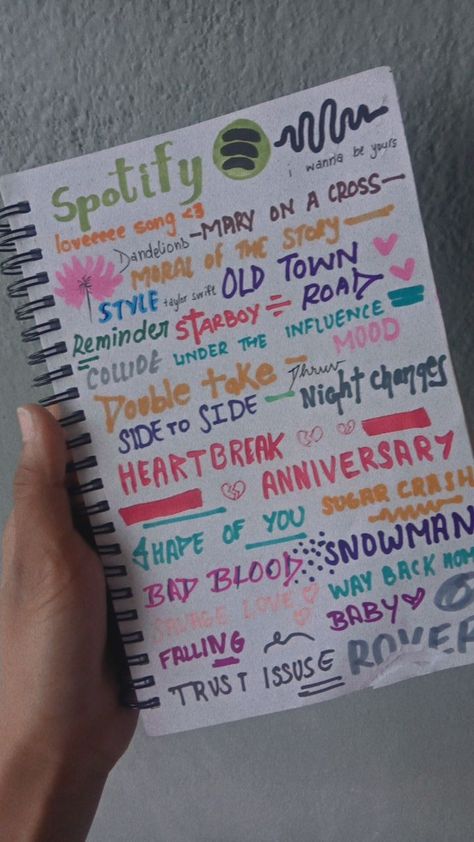 Spotify
i wanna be yours
loveeeee song <3
Dandelions - MARY ON A CROSS
MORAL OF THE STORY
STYLE taylor swift OLD TOWN ROAD
Reminder STARBOY
COLLIDE UNDER THE INFLUENCE
Double take Thruv MOOD
SIDE TO SIDE Night Changes
HEARTBREAK ANNIVERSARY
SHAPE OF YOU SUGAR CRASH
SNOWMAN
BAD BLOOD WAY BACK HOM
SAVAGE LOVE BABY
FALLING
TRUST ISSUSE ROVER